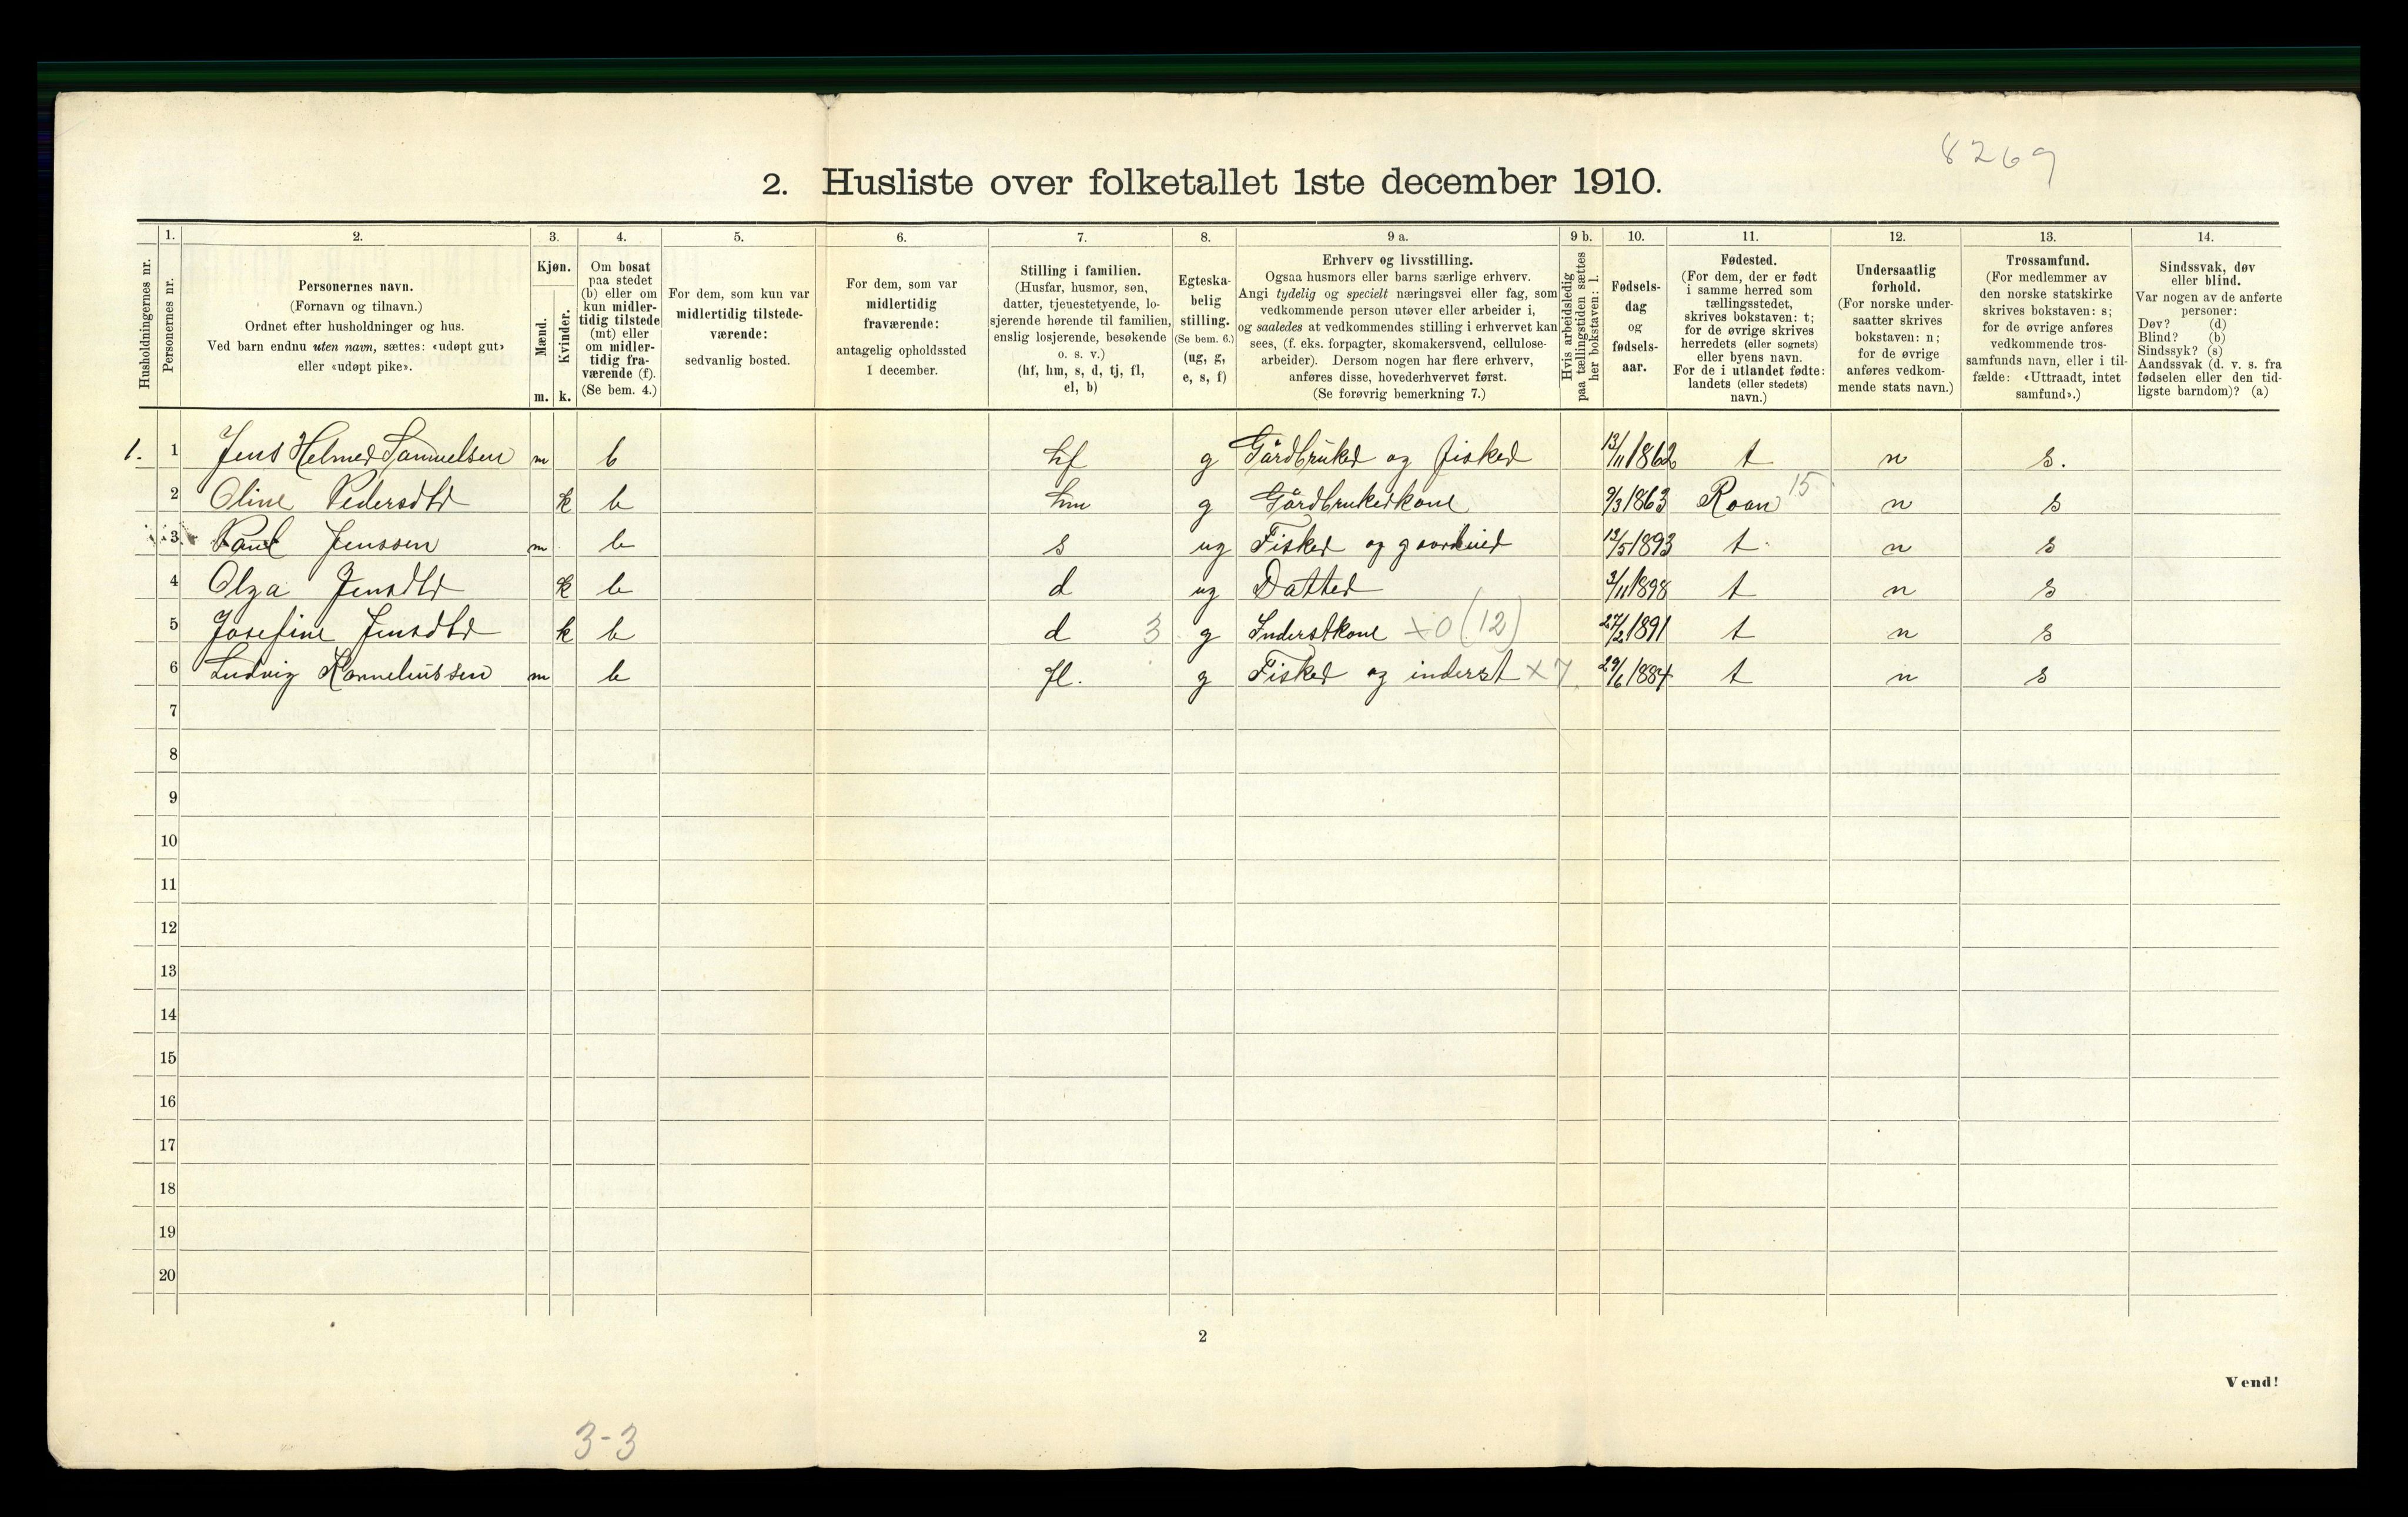 8269
2. Husliste over folketallet 1ste december 1910.
Husholdningernes nr.
1.
Personernes nr.
2.
Personernes navn.
(Fornavn og tilnavn.)
Ordnet efter husholdninger og hus.
Ved barn endnu uten navn, sættes: «udøpt gut»
eller «udøpt pike».
3.
Kjøn.
Mænd.
Kvinder.
m. k.
4.
Om bosat
paa stedet
(b) eller om
kun midler-
tidig tilstede
(mt) eller
om midler-
tidig fra-
værende (f).
(Se bem. 4.)
5.
For dem, som kun var
midlertidig tilstede-
værende:
sedvanlig bosted.
6.
For dem, som var
midlertidig
fraværende:
antagelig opholdssted
1 december.
7.
Stilling i familien.
(Husfar, husmor, søn,
datter, tjenestetyende, lo-
sjerende hørende til familien,
enslig losjerende, besøkende
o. s. v.)
(hf, hm, s, d, tj, fl,
el, b)
8.
Egteska-
belig
stilling.
(Se bem. 6.)
(ug, g,
e, s, f)
9 a.
Erhverv og livsstilling.
Ogsaa husmors eller barns særlige erhverv.
Angi tydelig og specielt næringsvei eller fag, som
vedkommende person utøver eller arbeider i,
og saaledes at vedkommendes stilling i erhvervet kan
sees, (f. eks. forpagter, skomakersvend, cellulose-
arbeider). Dersom nogen har flere erhverv,
anføres disse, hovederhvervet først.
(Se forøvrig bemerkning 7.)
9 b.
Hvis arbeidsledig
paa tællingstiden sættes
her bokstaven: l.
10.
Fødsels-
dag
og
fødsels-
aar.
11.
Fødested.
(For dem, der er født
i samme herred som
tællingsstedet,
skrives bokstaven: t;
for de øvrige skrives
herredets (eller sognets)
eller byens navn.
For de i utlandet fødte:
landets (eller stedets)
navn.)
12.
Undersaatlig
forhold.
(For norske under-
saatter skrives
bokstaven: n;
for de øvrige
anføres vedkom-
mende stats navn.)
13.
Trossamfund.
(For medlemmer av
den norske statskirke
skrives bokstaven: s;
for de øvrige anføres
vedkommende tros-
samfunds navn, eller i til-
fælde: «Uttraadt, intet
samfund».)
14.
Sindssvak, døv
eller blind.
Var nogen av de anførte
personer:
Døv? (d)
Blind? (b)
Sindssyk? (s)
Aandssvak (d. v. s. fra
fødselen eller den tid-
ligste barndom)? (a)
1. 1 Jens Helmer Samuelsen m b hf g Gårdbruker og fisker 13/11 1862 t n s.
2 Oline Pedersdtr k b hm g Gårdbrukerkone 9/3 1863 Roan 15 n s
3 Paul Jenssen m b s ug Fisker og 13/5 1893 t n s
4 Olga Jensdtr k b d ug Datter 3/11 1898 t n s
5 Josefine Jensdtr k b d 3 g Inderstkone x0 (12) 27/2 1891 t n s
6 Ludvig Korneliussen m b fl. g Fisker og inderst x7 29/6 1884 t n s
7
8
9
10
11
12
13
14
15
16
17
18
19
20
2
Vend!
3-3